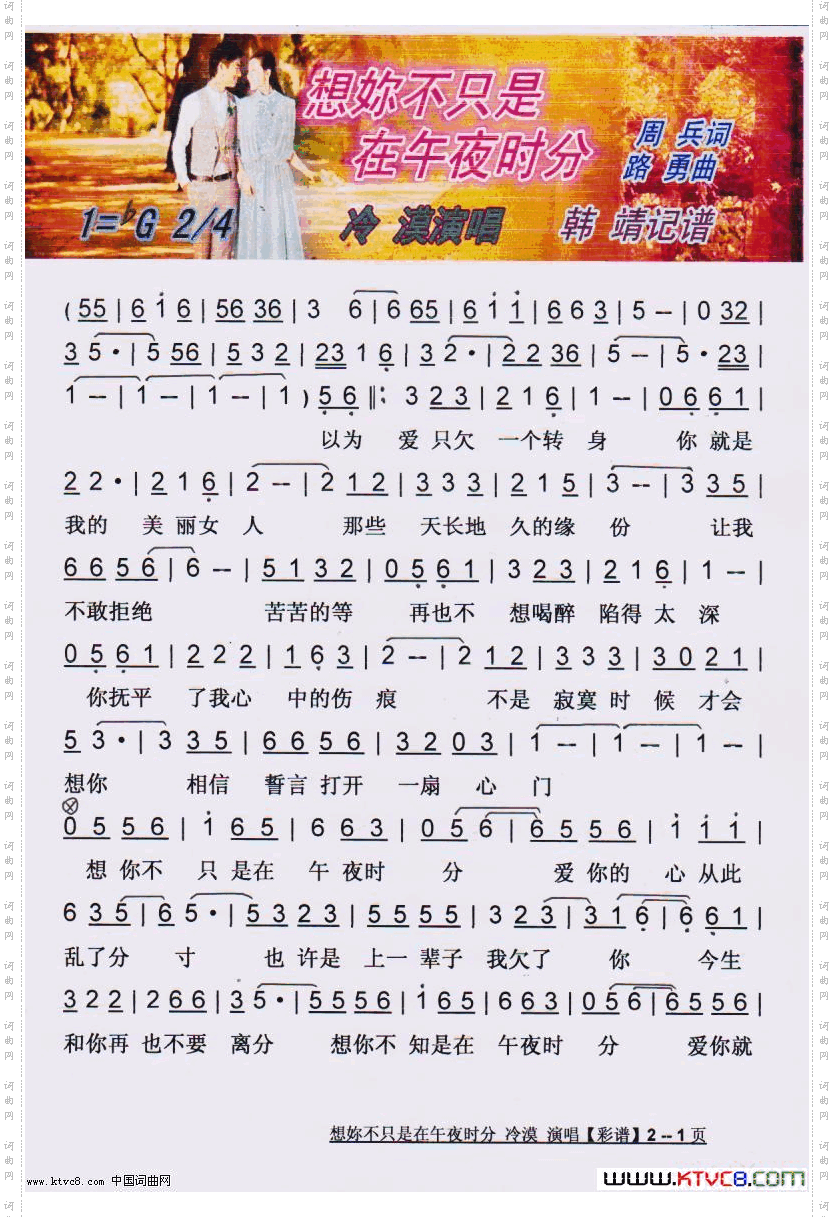 想妳不只是
在午夜时分
周 兵词
路 勇曲
1=♭G 2/4
冷 漠演唱
韩 靖记谱
( 55 | 6 1 6 | 56 36 | 3 6 | 6 65 | 6 1 1 | 6 6 3 | 5 -- | 0 32 |
3 5 · | 5 56 | 5 3 2 | 23 1 6 | 3 2 · | 2 2 36 | 5 -- | 5 · 23 |
1 -- | 1 -- | 1 -- | 1 ) 5 6 ‖: 3 2 3 | 2 1 6 | 1 -- | 0 6 6 1 |
以为 爱 只欠 一个转 身 你 就是
2 2 · | 2 1 6 | 2 -- | 2 1 2 | 3 3 3 | 2 1 5 | 3 -- | 3 3 5 |
我的 美 丽女 人 那些 天长地 久的缘 份 让我
6 6 5 6 | 6 -- | 5 1 3 2 | 0 5 6 1 | 3 2 3 | 2 1 6 | 1 -- |
不敢拒绝 苦苦的等 再也不 想喝醉 陷得 太 深
0 5 6 1 | 2 2 2 | 1 6 3 | 2 -- | 2 1 2 | 3 3 3 | 3 0 2 1 |
你抚平 了我心 中的伤 痕 不是 寂寞 时 候 才会
5 3 · | 3 3 5 | 6 6 5 6 | 3 2 0 3 | 1 -- | 1 -- | 1 -- |
想你 相信 誓言 打开 一扇 心 门
0 5 5 6 | 1 6 5 | 6 6 3 | 0 5 6 | 6 5 5 6 | 1 1 1 |
想 你不 只 是在 午 夜时 分 爱 你的 心 从此
6 3 5 | 6 5 · | 5 3 2 3 | 5 5 5 5 | 3 2 3 | 3 1 6 | 6 6 1 |
乱了分 寸 也 许是 上一 辈子 我欠了 你 今生
3 2 2 | 2 6 6 | 3 5 · | 5 5 5 6 | 1 6 5 | 6 6 3 | 0 5 6 | 6 5 5 6 |
和你再 也不要 离分 想你不 知是在 午夜时 分 爱你就
想妳不只是在午夜时分 冷漠 演唱【彩谱】2 -- 1 页
www.ktvc8.com 中国词曲网
WWW.KTVC8.COM